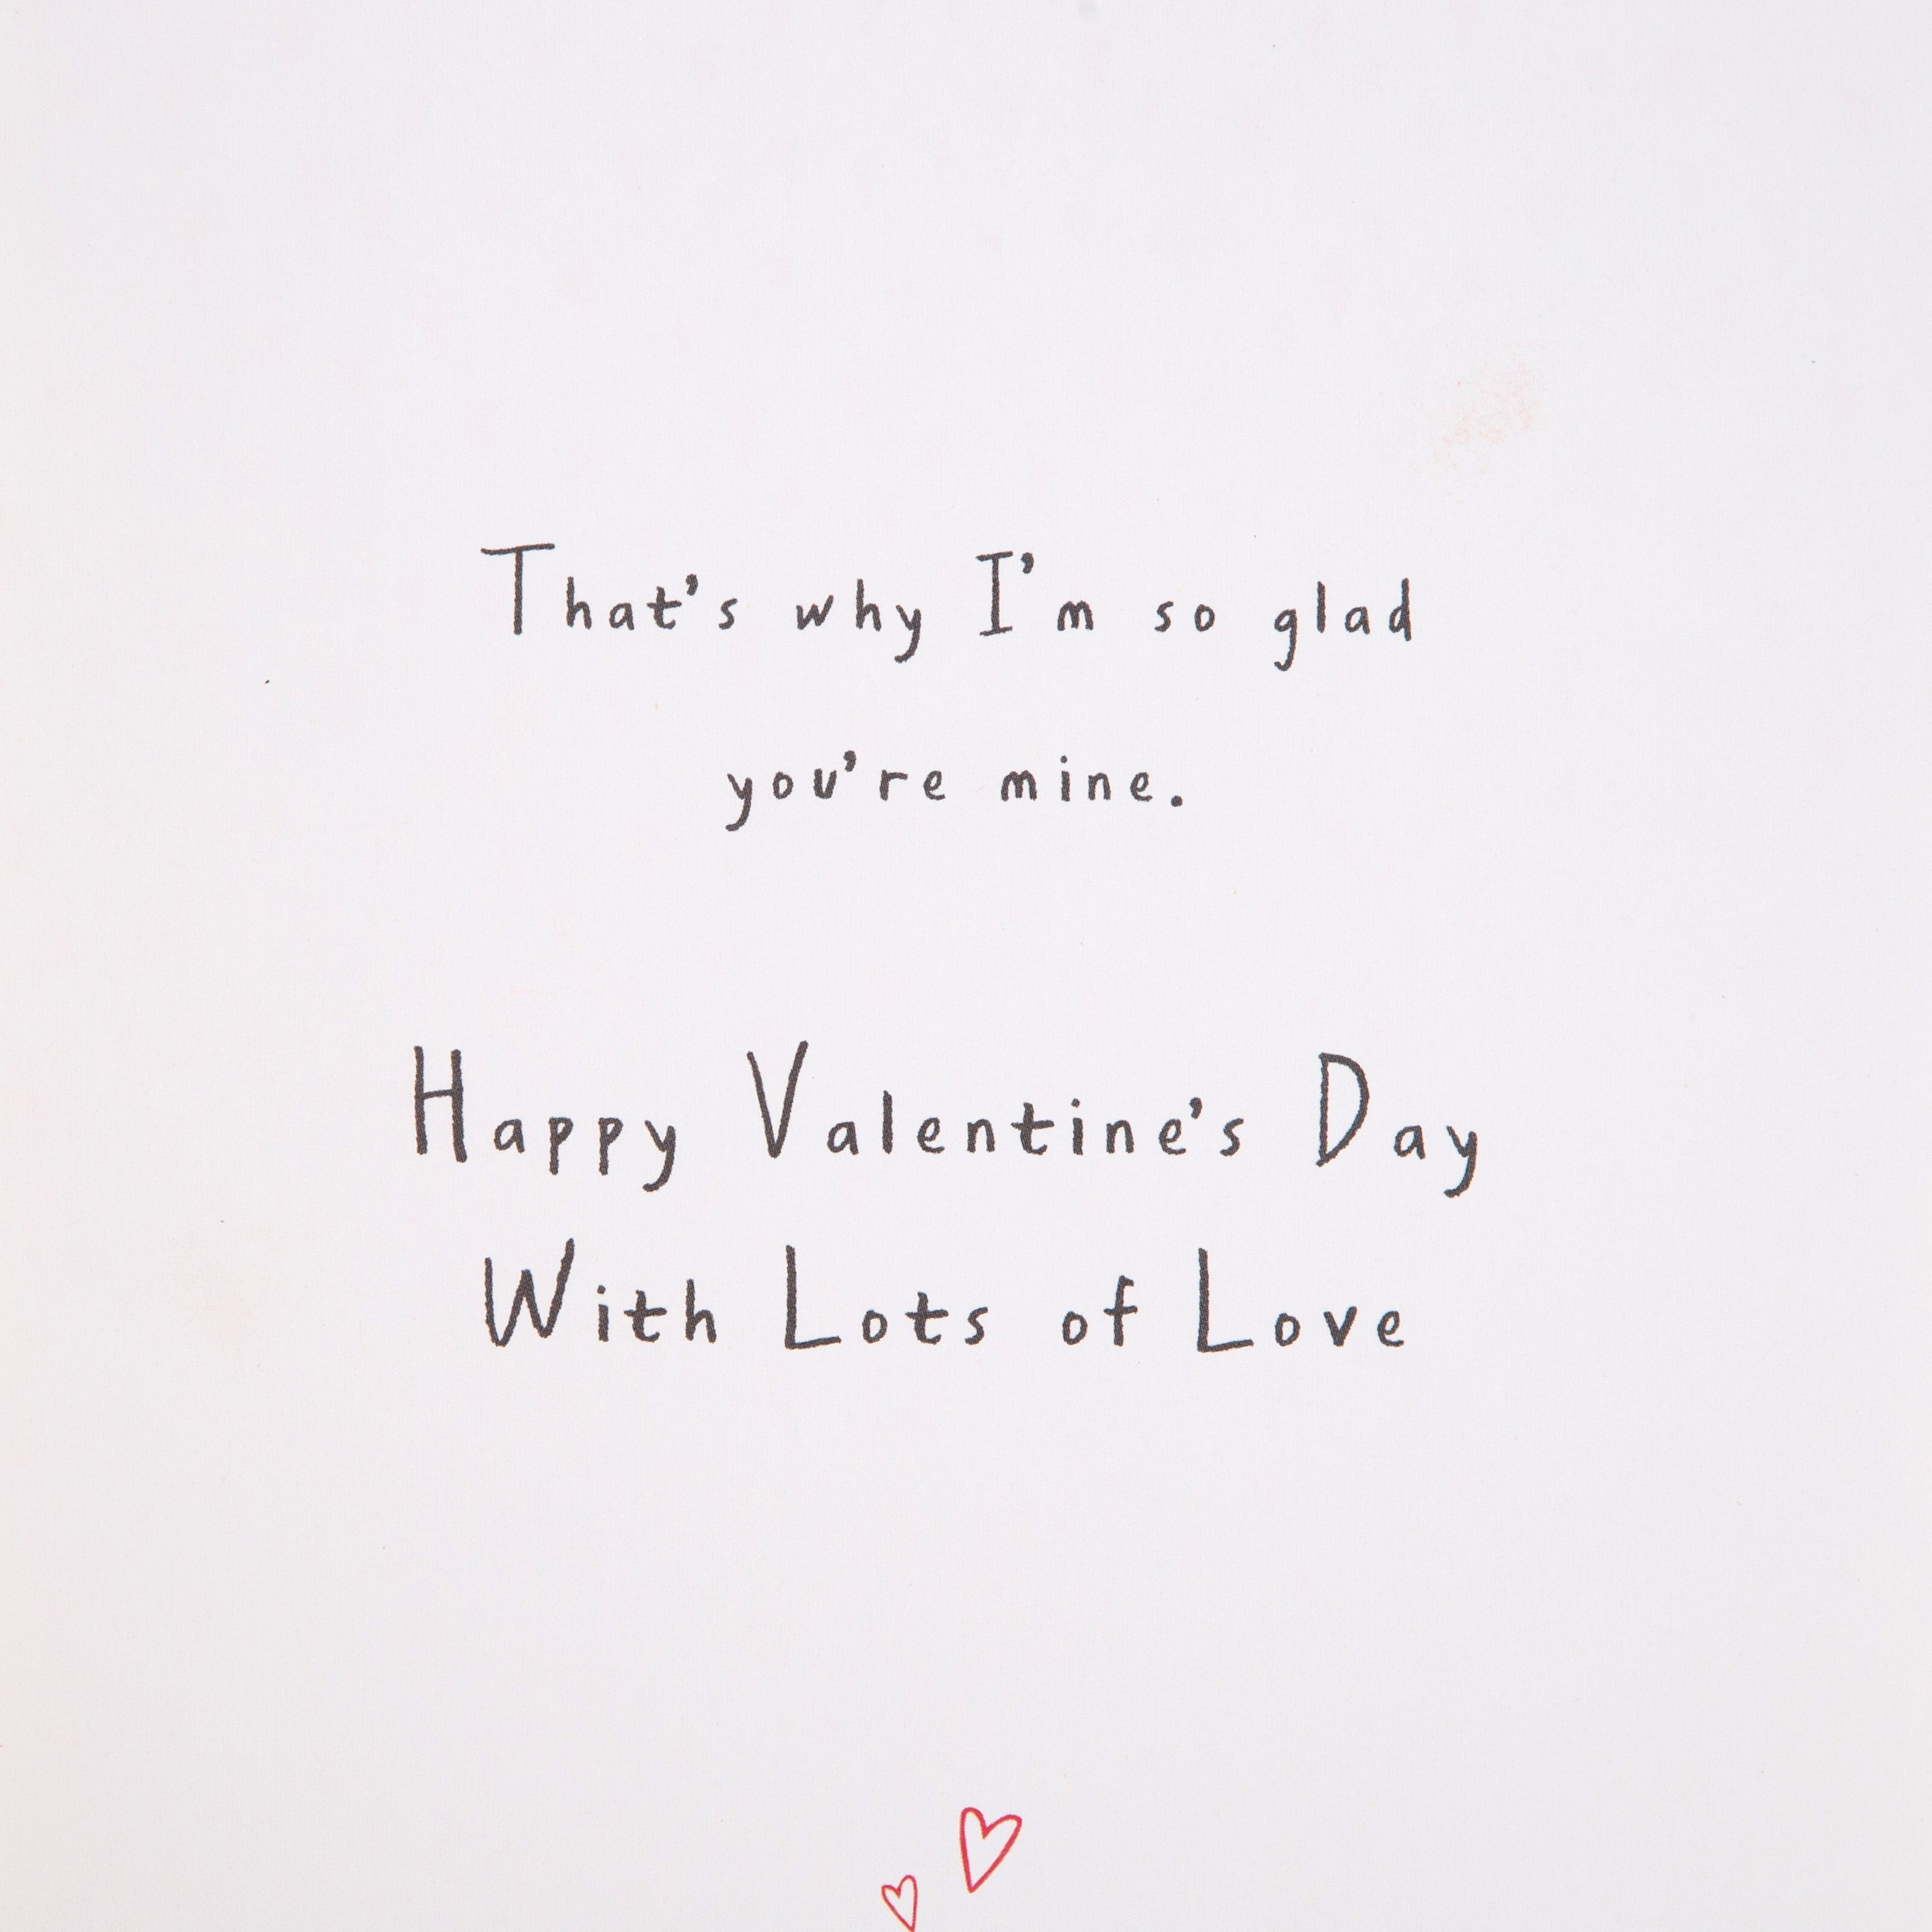 That's why I'm so glad
you're mine.
Happy Valentine's Day
With Lots of Love